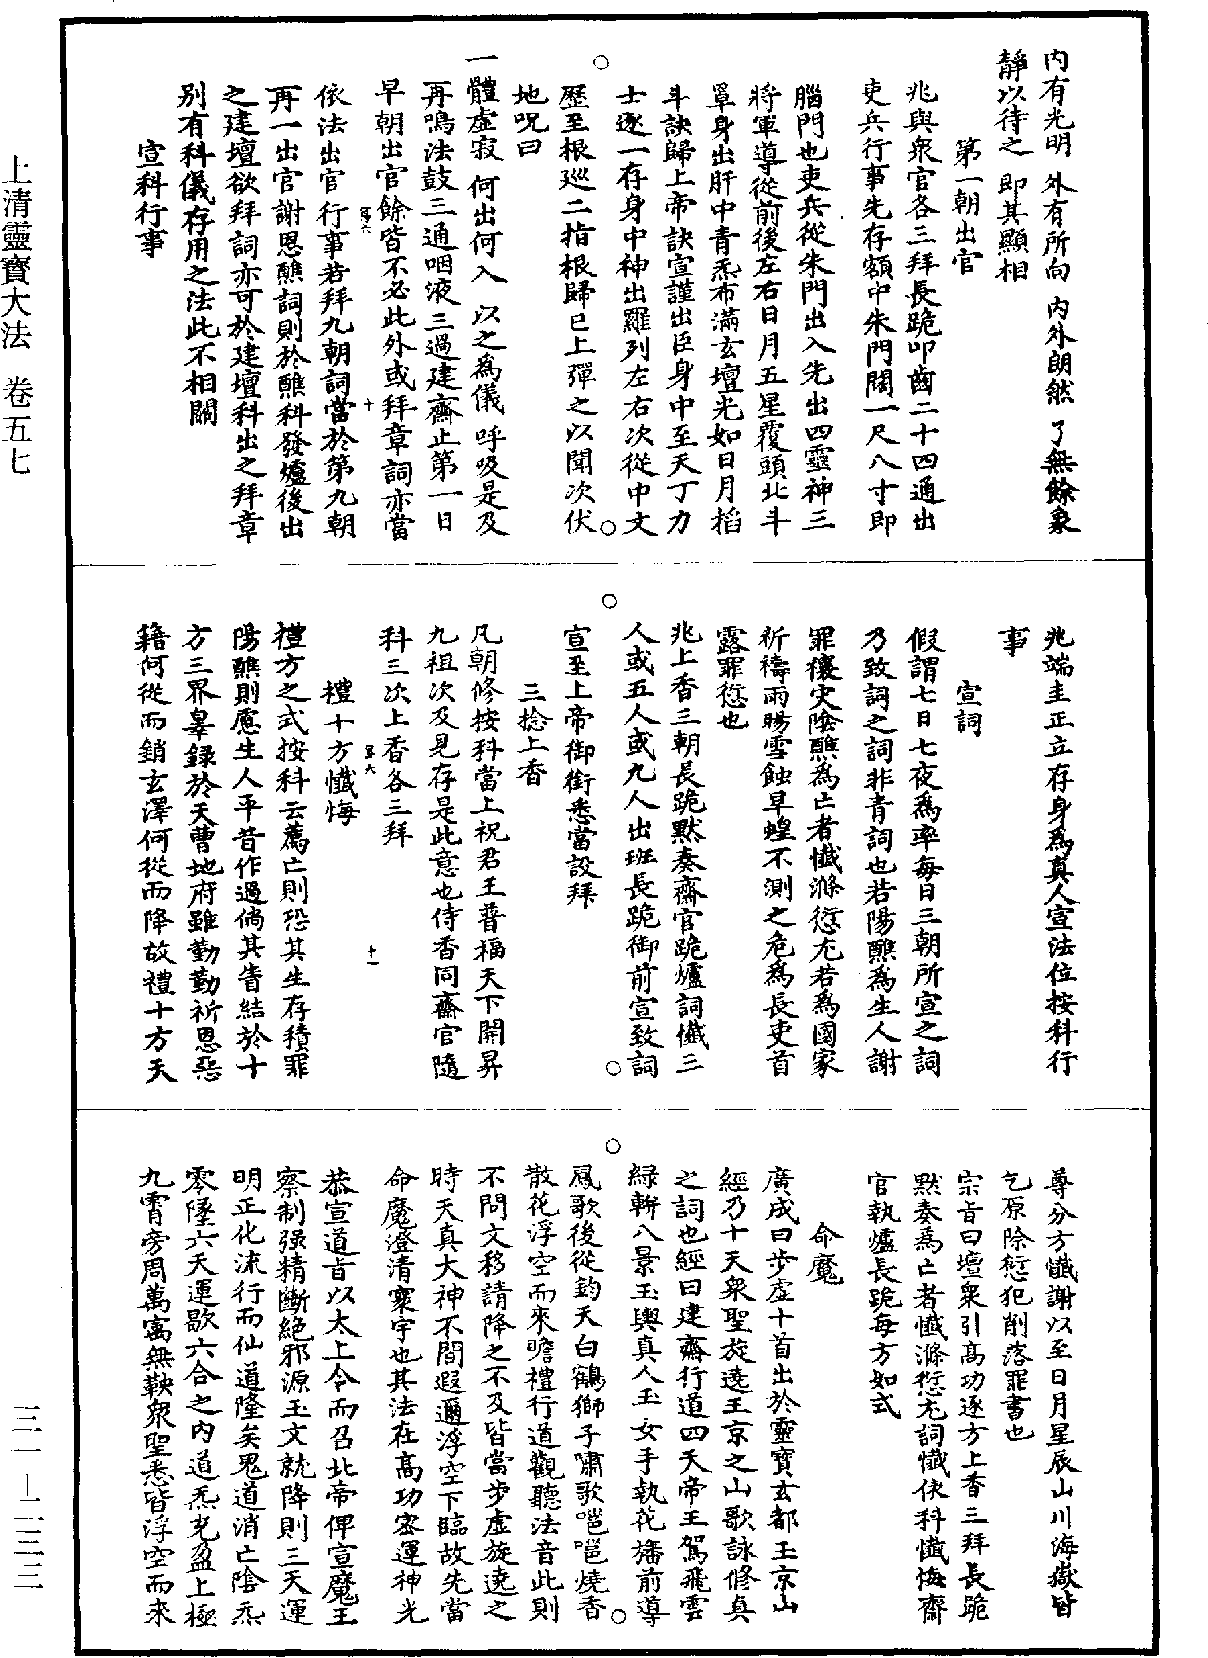 內有光明　外有所向　內外朗然　了無餘象
靜以待之　即其顯相
第一朝出官
兆與衆官各三拜長跪叩齒二十四通出
吏兵行事先存額中朱門闊一尺八寸即
腦門也吏兵從朱門出入先出四靈神三
將軍導從前後左右日月五星覆頭北斗
罩身出肝中青炁布滿玄壇光如日月掐
斗訣歸上帝訣宣謹出臣身中至天丁力
士逐一存身中神出羅列左右次從中文
歷至根巡二指根歸巳上彈之以聞次伏
地呪曰
一體虛寂　何出何入　以之爲儀　呼吸是及
再鳴法鼓三通咽液三過建齋止第一日
早朝出官餘皆不必此外或拜章詞亦當
依法出官行事若拜九朝詞當於第九朝
再一出官謝恩醮詞則於醮科發爐後出
之建壇欲拜詞亦可於建壇科出之拜章
別有科儀存用之法此不相關
宣科行事
兆端圭正立存身爲真人宣法位按科行
事
宣詞
假謂七日七夜爲率每日三朝所宣之詞
乃致詞之詞非青詞也若陽醮爲生人謝
罪禳灾陰醮爲亡者懺滌愆尤若爲國家
祈禱雨暘雪蝕旱蝗不測之危爲長吏首
露罪愆也
兆上香三朝長跪默奏齋官跪爐詞懺三
人或五人或九人出班長跪御前宣致詞
宣至上帝御銜悉當設拜
三捻上香
凡朝修按科當上祝君王普福天下開昇
九祖次及見存是此意也侍香同齋官隨
科三次上香各三拜
禮十方懺悔
禮方之式按科云薦亡則恐其生存積罪
陽醮則慮生人平昔作過倘其眚結於十
方三界辠錄於天曹地府雖勤勤祈恩惡
籍何從而銷玄澤何從而降故禮十方天
尊分方懺謝以至日月星辰山川海嶽皆
乞原除愆犯削落罪書也
宗旨曰壇衆引高功逐方上香三拜長跪
默奏爲亡者懺滌愆尤詞懺依科懺悔齋
官執爐長跪每方如式
命魔
廣成曰步虛十首出於靈寶玄都玉京山
經乃十天衆聖旋遶玉京之山歌詠修真
之詞也經曰建齋行道四天帝王駕飛雲
綠軿八景玉輿真人玉女手執花旛前導
鳳歌後從鈞天白鶴獅子嘯歌嗈嗈燒香
散花浮空而來瞻禮行道觀聽法音此則
不問文移請降之不及皆當步虛旋遶之
時天真大神不間遐邇浮空下臨故先當
命魔澄清寰宇也其法在高功密運神光
恭宣道旨以太上令而召北帝俾宣魔王
察制强精斷絕邪源玉文就降則三天運
明正化流行而仙道隆矣鬼道消亡陰炁
零墜六天運歇六合之內道炁光盈上極
九霄旁周萬寓無鞅衆聖悉皆浮空而來
上清靈寶大法　卷五七
三一－二三三